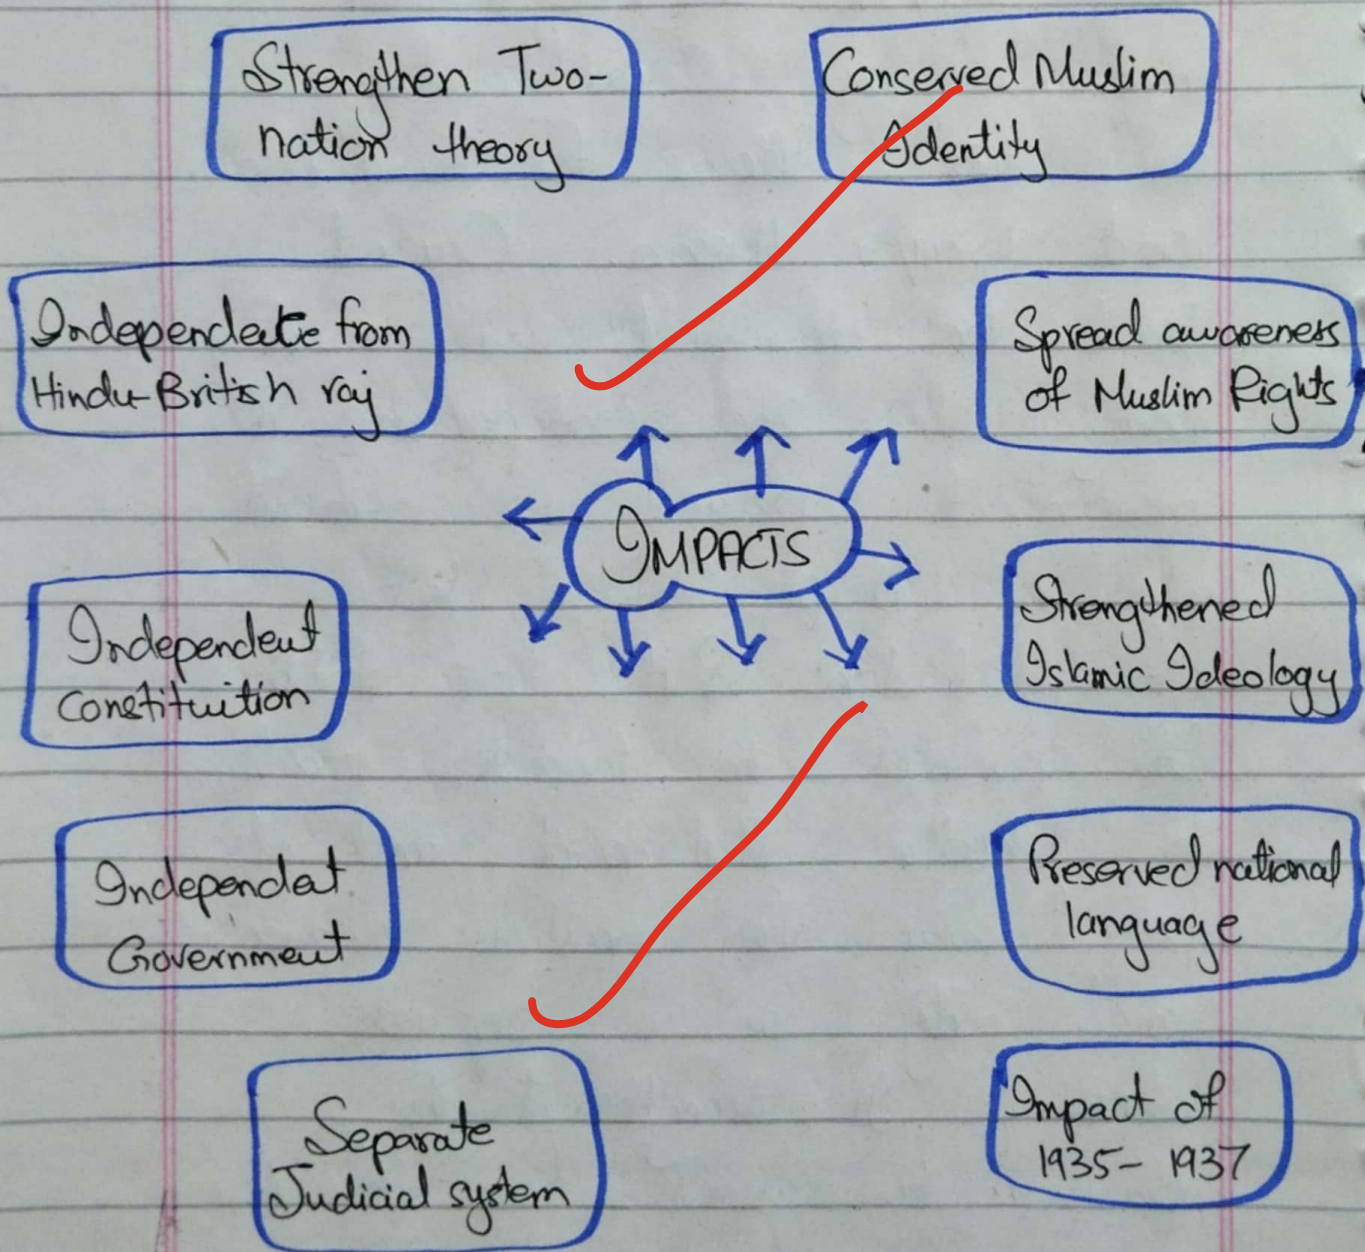 Strengthen Two-
nation theory
Conserved Muslim
Identity
Independete from
Hindu-British raj
Spread awareness
of Muslim Rights
IMPACTS
Independent
constituition
Strengthened
Islamic Ideology
Independat
Government
Preserved national
language
Separate
Judicial system
Impact of
1935- 1937